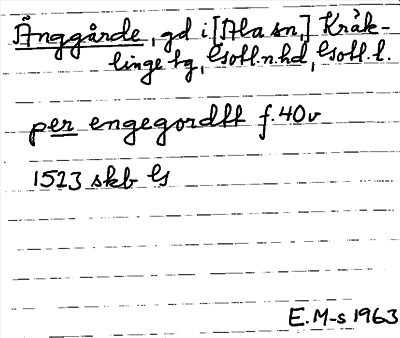 Änggårde, gd i [Ala sn,] Kräk-
linge tg, Gotl. n. hd, Gotl. l.
per engegordhh f. 40v
1523 skb G
E. M-s 1963